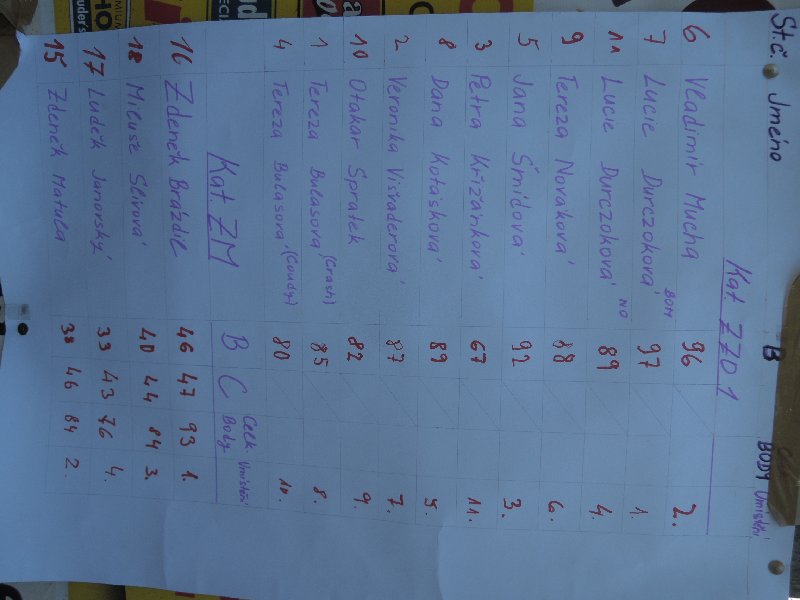 St.č Jméno B BODY Umístění
Kat. ZZO 1
6 Vladimír Mucha 96 2.
7 Lucie Durczoková BOM 97 1.
11 Lucie Durczoková NO 89 4.
9 Tereza Novaková 88 6.
5 Jana Šmídová 92 3.
3 Petra Križanková 67 11.
8 Dana Kotásková 89 5.
2 Veronika Visnaderová 87 7.
10 Otakar Spratek 82 9.
1 Tereza Bulasova (Crash) 85 8.
4 Tereza Bulasová (Coudy) 80 10.
Kat ZM B C Celk. Body Umístění
16 Zdeněk Brázdil 46 47 93 1.
18 Miluše Slívová 40 44 84 3.
17 Luděk Janorský 33 43 76 4.
15 Zdeněk Matula 38 46 84 2.